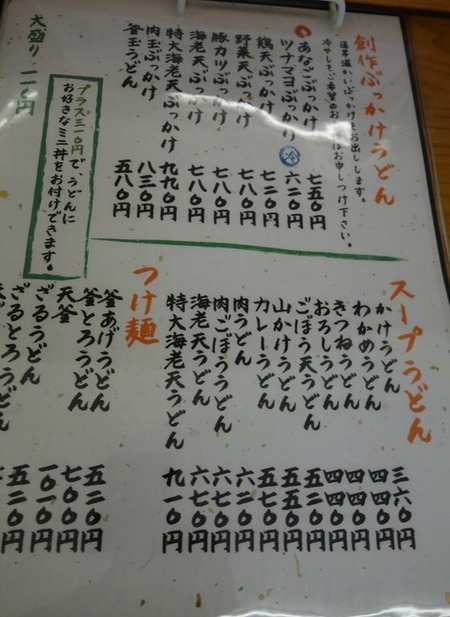 創作ぶっかけうどん
通常温かいぶっかけをお出しします。
冷やしをご希望のお はお申しつけ下さい。
あなごぶっかけ 七五〇円
ツナマヨぶっかけ 冷 六二〇円
鶏天ぶっかけ 七二〇円
野菜天ぶっかけ 七八〇円
豚カツぶっかけ 七八〇円
海老天ぶっかけ 七八〇円
特大海老天ぶっかけ 九九〇円
肉玉ぶっかけ 八三〇円
釜玉うどん 五八〇円
プラス三一〇円で うどんに
お好きなミニ丼をお付けできます。
大盛り 一一〇円
スープうどん
かけうどん 三六〇円
わかめうどん 四四〇円
きつねうどん 四四〇円
おろしうどん 四四〇円
ごぼう天うどん 五二〇円
山かけうどん 五五〇円
カレーうどん 五五〇円
肉うどん 六二〇円
肉ごぼううどん 六七〇円
海老天うどん 六七〇円
特大海老天うどん 九一〇円
つけ麺
釜あげうどん 五二〇円
釜とろうどん 七〇〇円
天釜 一〇一〇円
ざるうどん 五二〇円
ざるとろうどん